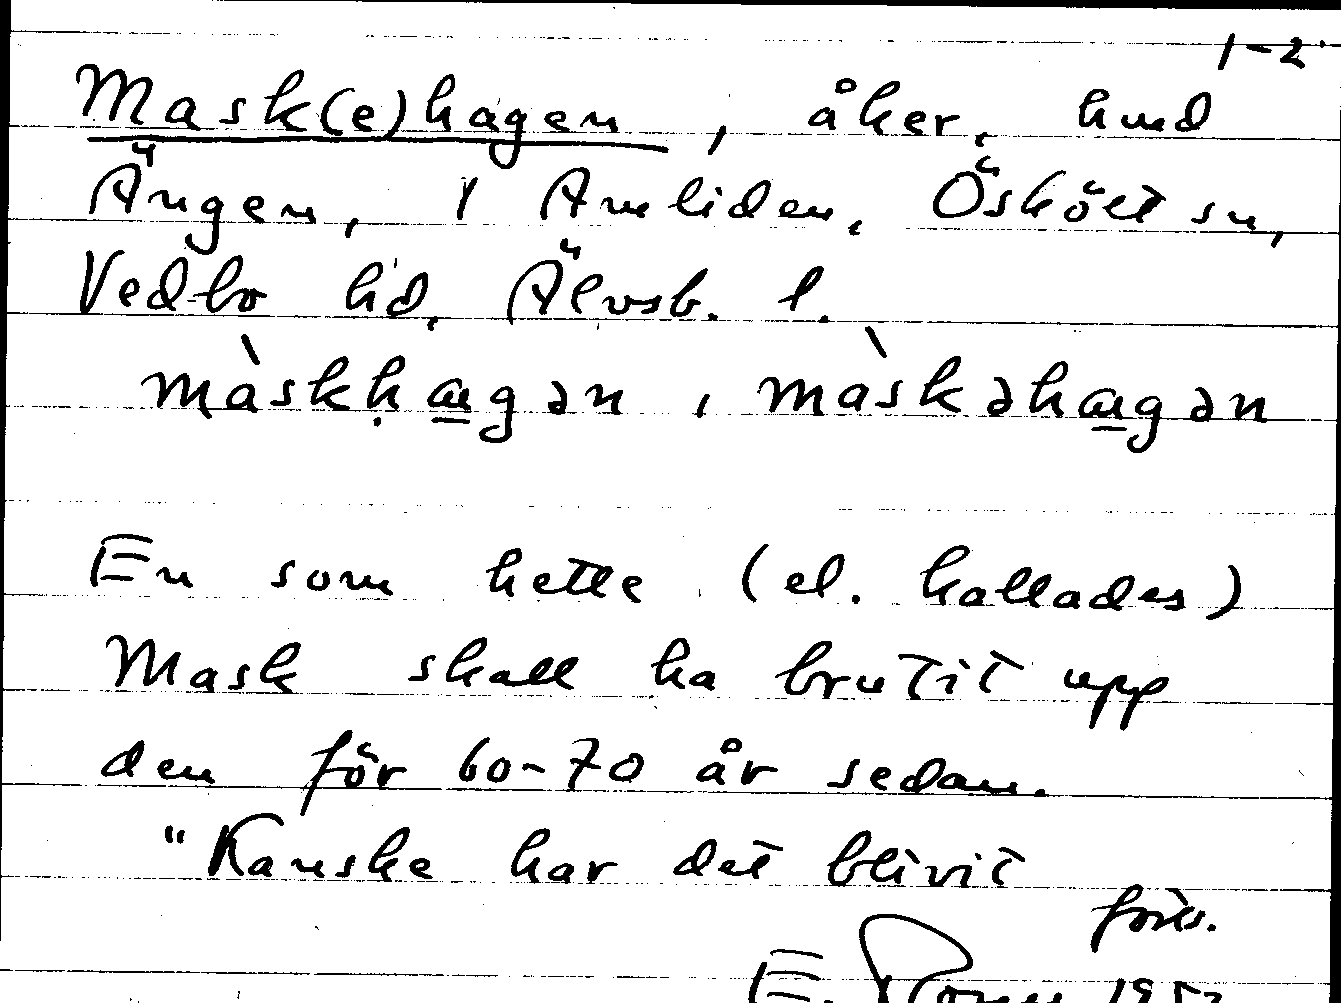 1-2
Mask(e)hagen, åker, hmd
Ängen, i Amliden, Ösköts sn,
Vedbo hd, Älvsb. l.
màskḥa̲gən, màskəha̲gən
En som hette (el. kallades)
Mask skall ha brutit upp
den för 60-70 år sedan.
"Kanske har det blivit
forts.
E.